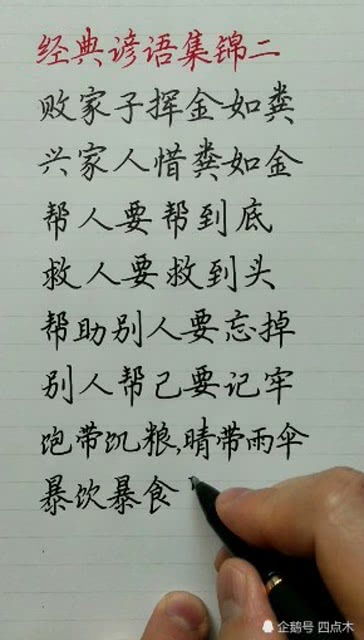 经典谚语集锦二
败家子挥金如粪
兴家人惜粪如金
帮人要帮到底
救人要救到头
帮助别人要忘掉
别人帮己要记牢
饱带饥粮,晴带雨伞
暴饮暴食
企鹅号 四点木